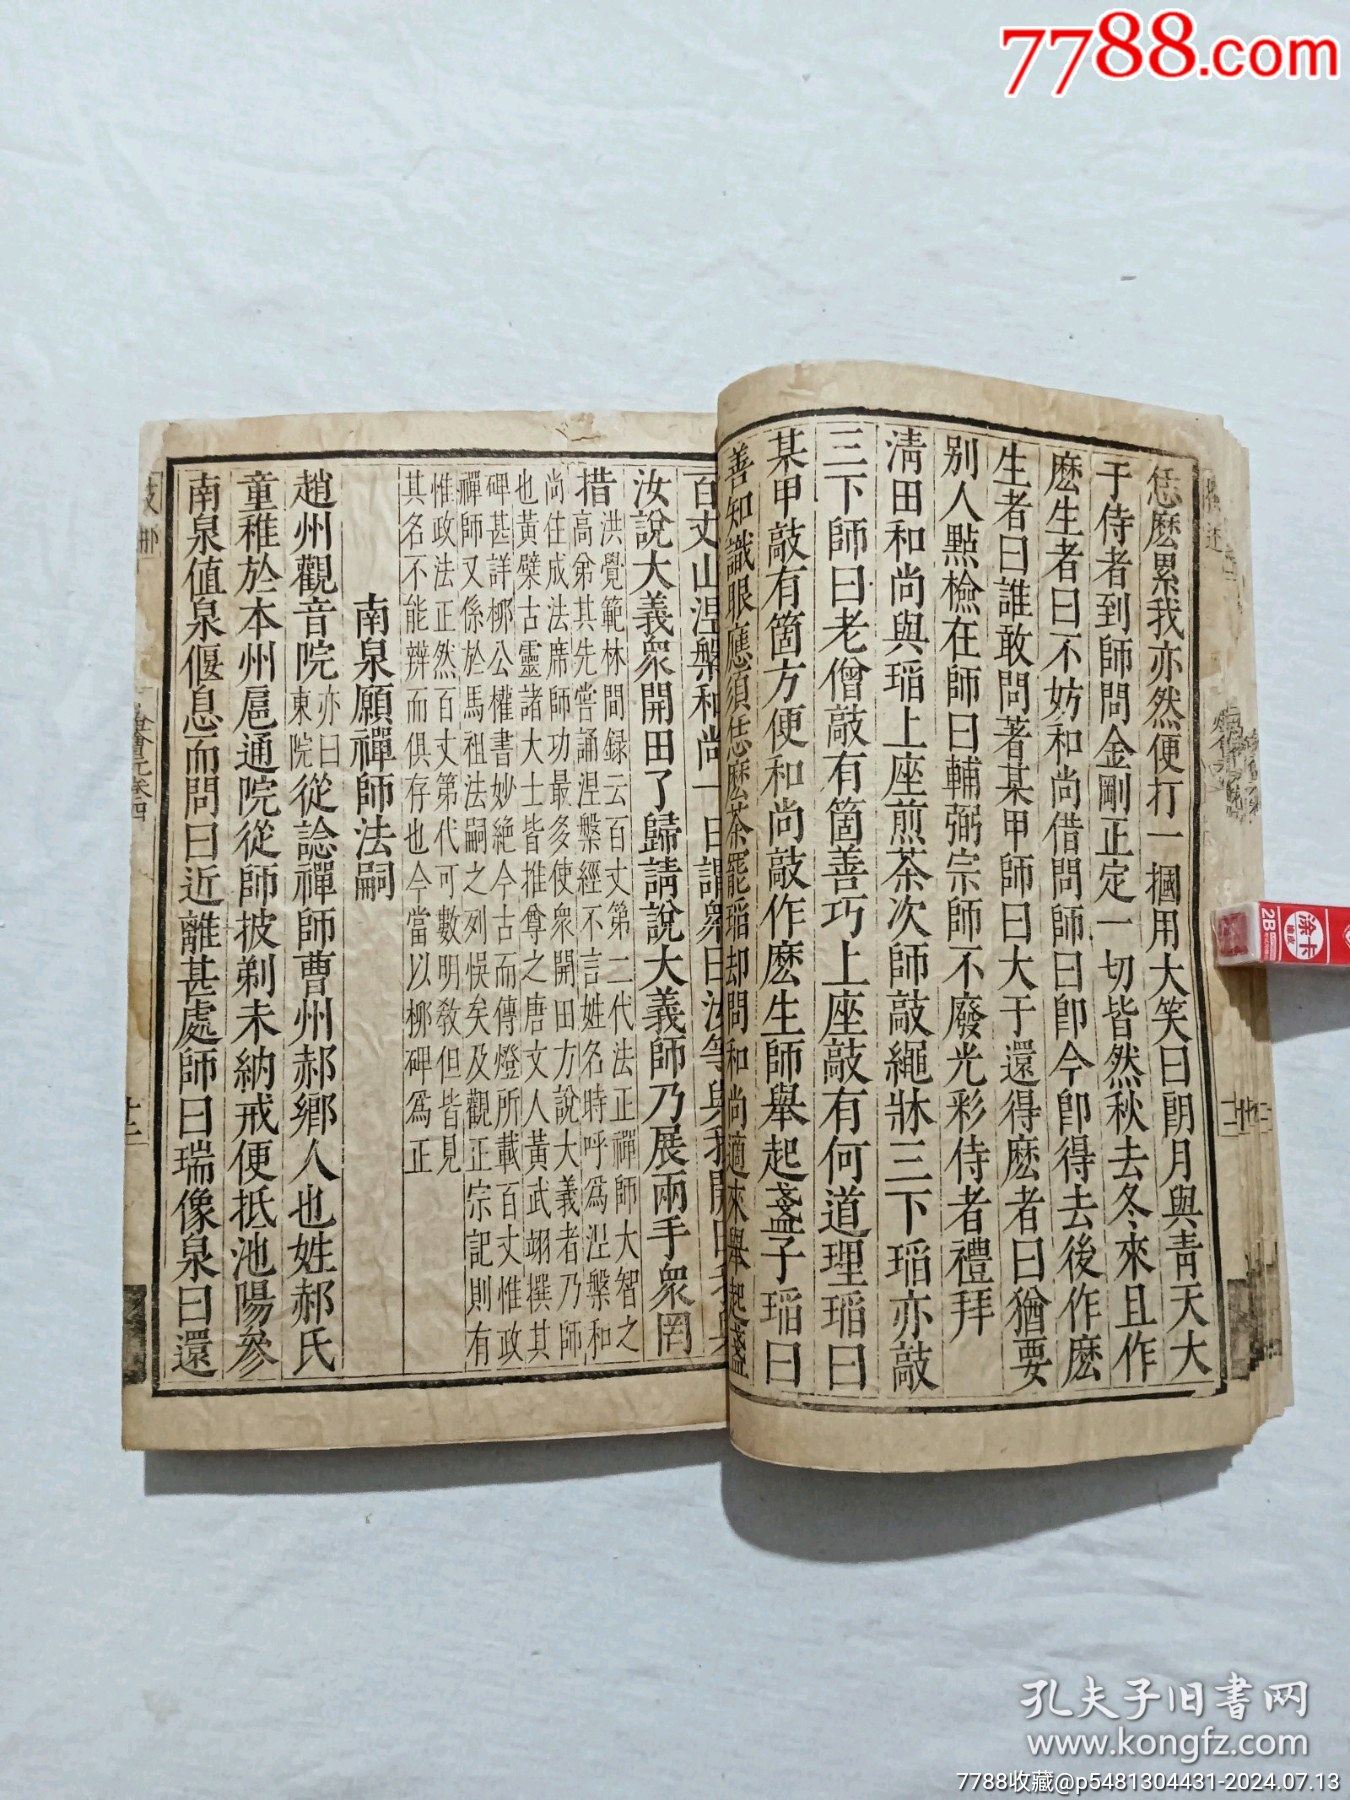 7788.com
恁麽累我亦然便打一摑用大笑曰朗月與青天大
于侍者到師問金剛正定一切皆然秋去冬來且作
麽生者曰不妨和尚借問師曰卽今卽得去後作麽
生者曰誰敢問著某甲師曰大于還得麽者曰猶要
别人點檢在師曰輔弼宗師不廢光彩侍者禮拜
淸田和尚與瑫上座煎茶次師敲繩牀三下瑫亦敲
三下師曰老僧敲有箇善巧上座敲有何道理瑫曰
某甲敲有箇方便和尚敲作麽生師舉起盞子瑫曰
善知識眼應須恁麽茶罷瑫却問和尚適來舉起盞
百丈山涅槃和尚一日謂衆曰汝等與我開田
汝說大義衆開田了歸請說大義師乃展兩手衆罔
措
洪覺範林間録云百丈第二代法正禪師大智之
高弟其先嘗誦涅槃經不言姓名時呼爲涅槃和
尚住成法席師功最多使衆開田方說大義者乃師
也黃檗古靈諸大士皆推尊之唐文人黃武翊撰其
碑甚詳柳公權書妙絶今古而傳燈所載百丈惟政
禪師又係於馬祖法嗣之列悞矣及觀正宗記則有
惟政法正然百丈第代可數明敎但皆見
其名不能辨而俱存也今當以柳碑爲正
南泉願禪師法嗣
趙州觀音院亦曰東院從諗禪師曹州郝鄉人也姓郝氏
童稚於本州扈通院從師披剃未納戒便抵池陽參
南泉値泉偃息而問曰近離甚處師曰瑞像泉曰還
涂卡
2B
孔夫子旧書网
www.kongfz.com
7788收藏@p5481304431-2024.07.13